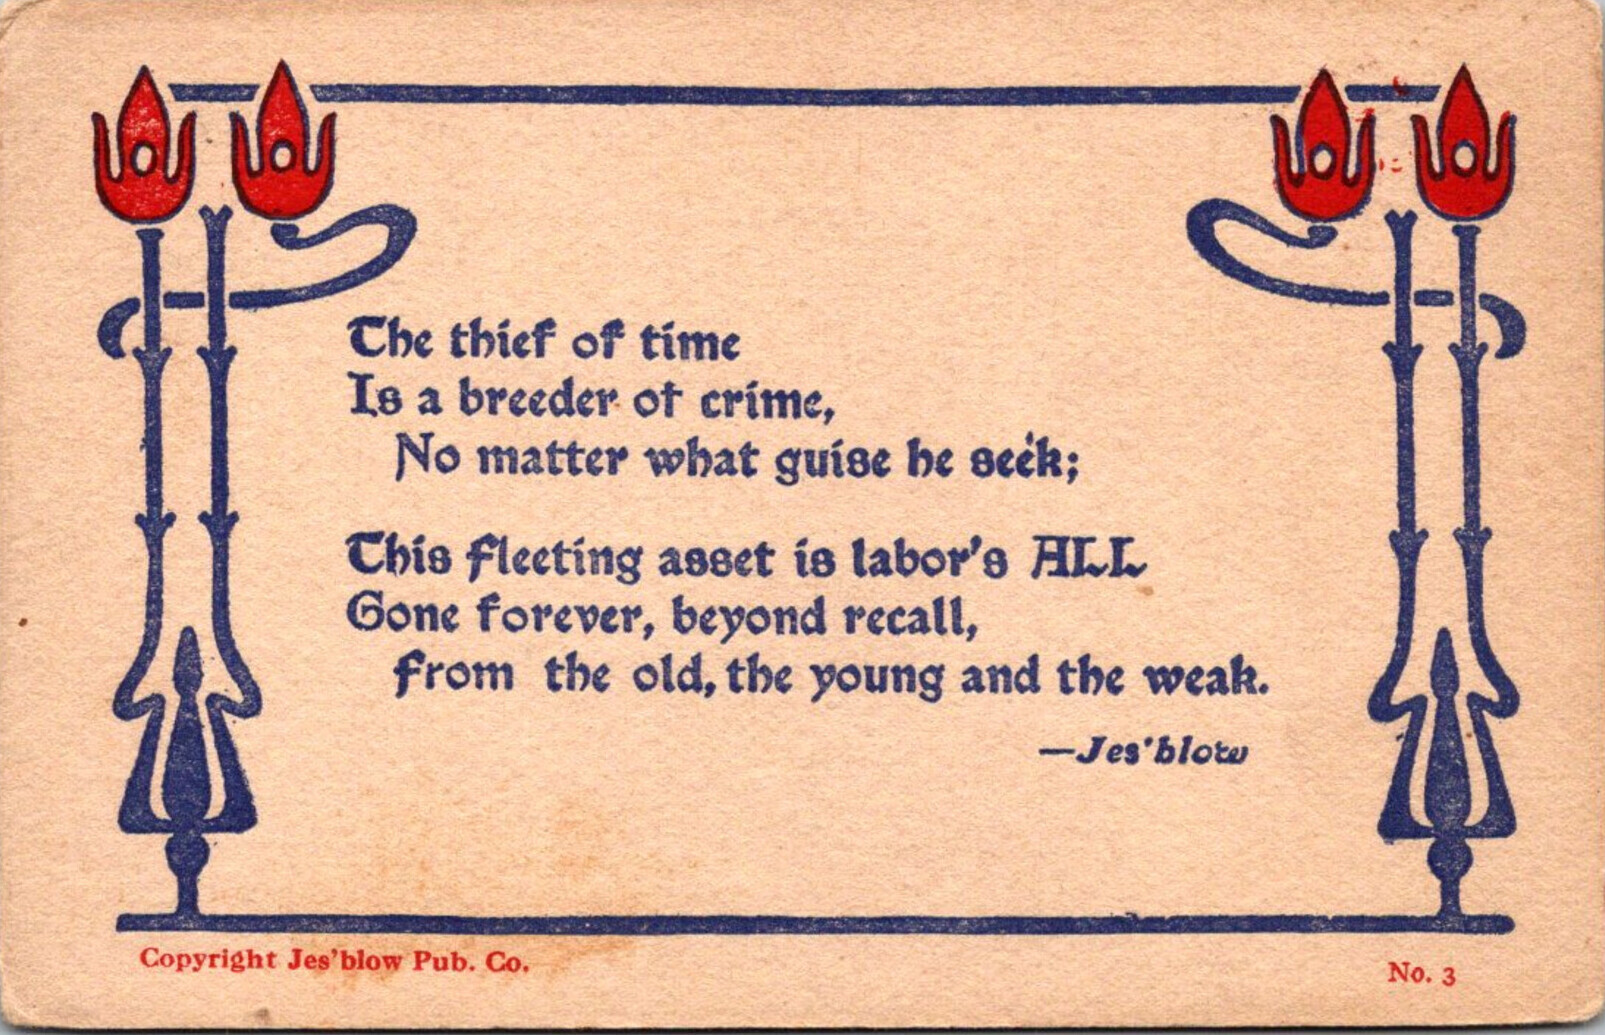 The thief of time
Is a breeder of crime,
No matter what guise he seek;
This fleeting asset is labor's ALL
Gone forever, beyond recall,
From the old, the young and the weak.
—Jes'blow
Copyright Jes'blow Pub. Co.
No. 3